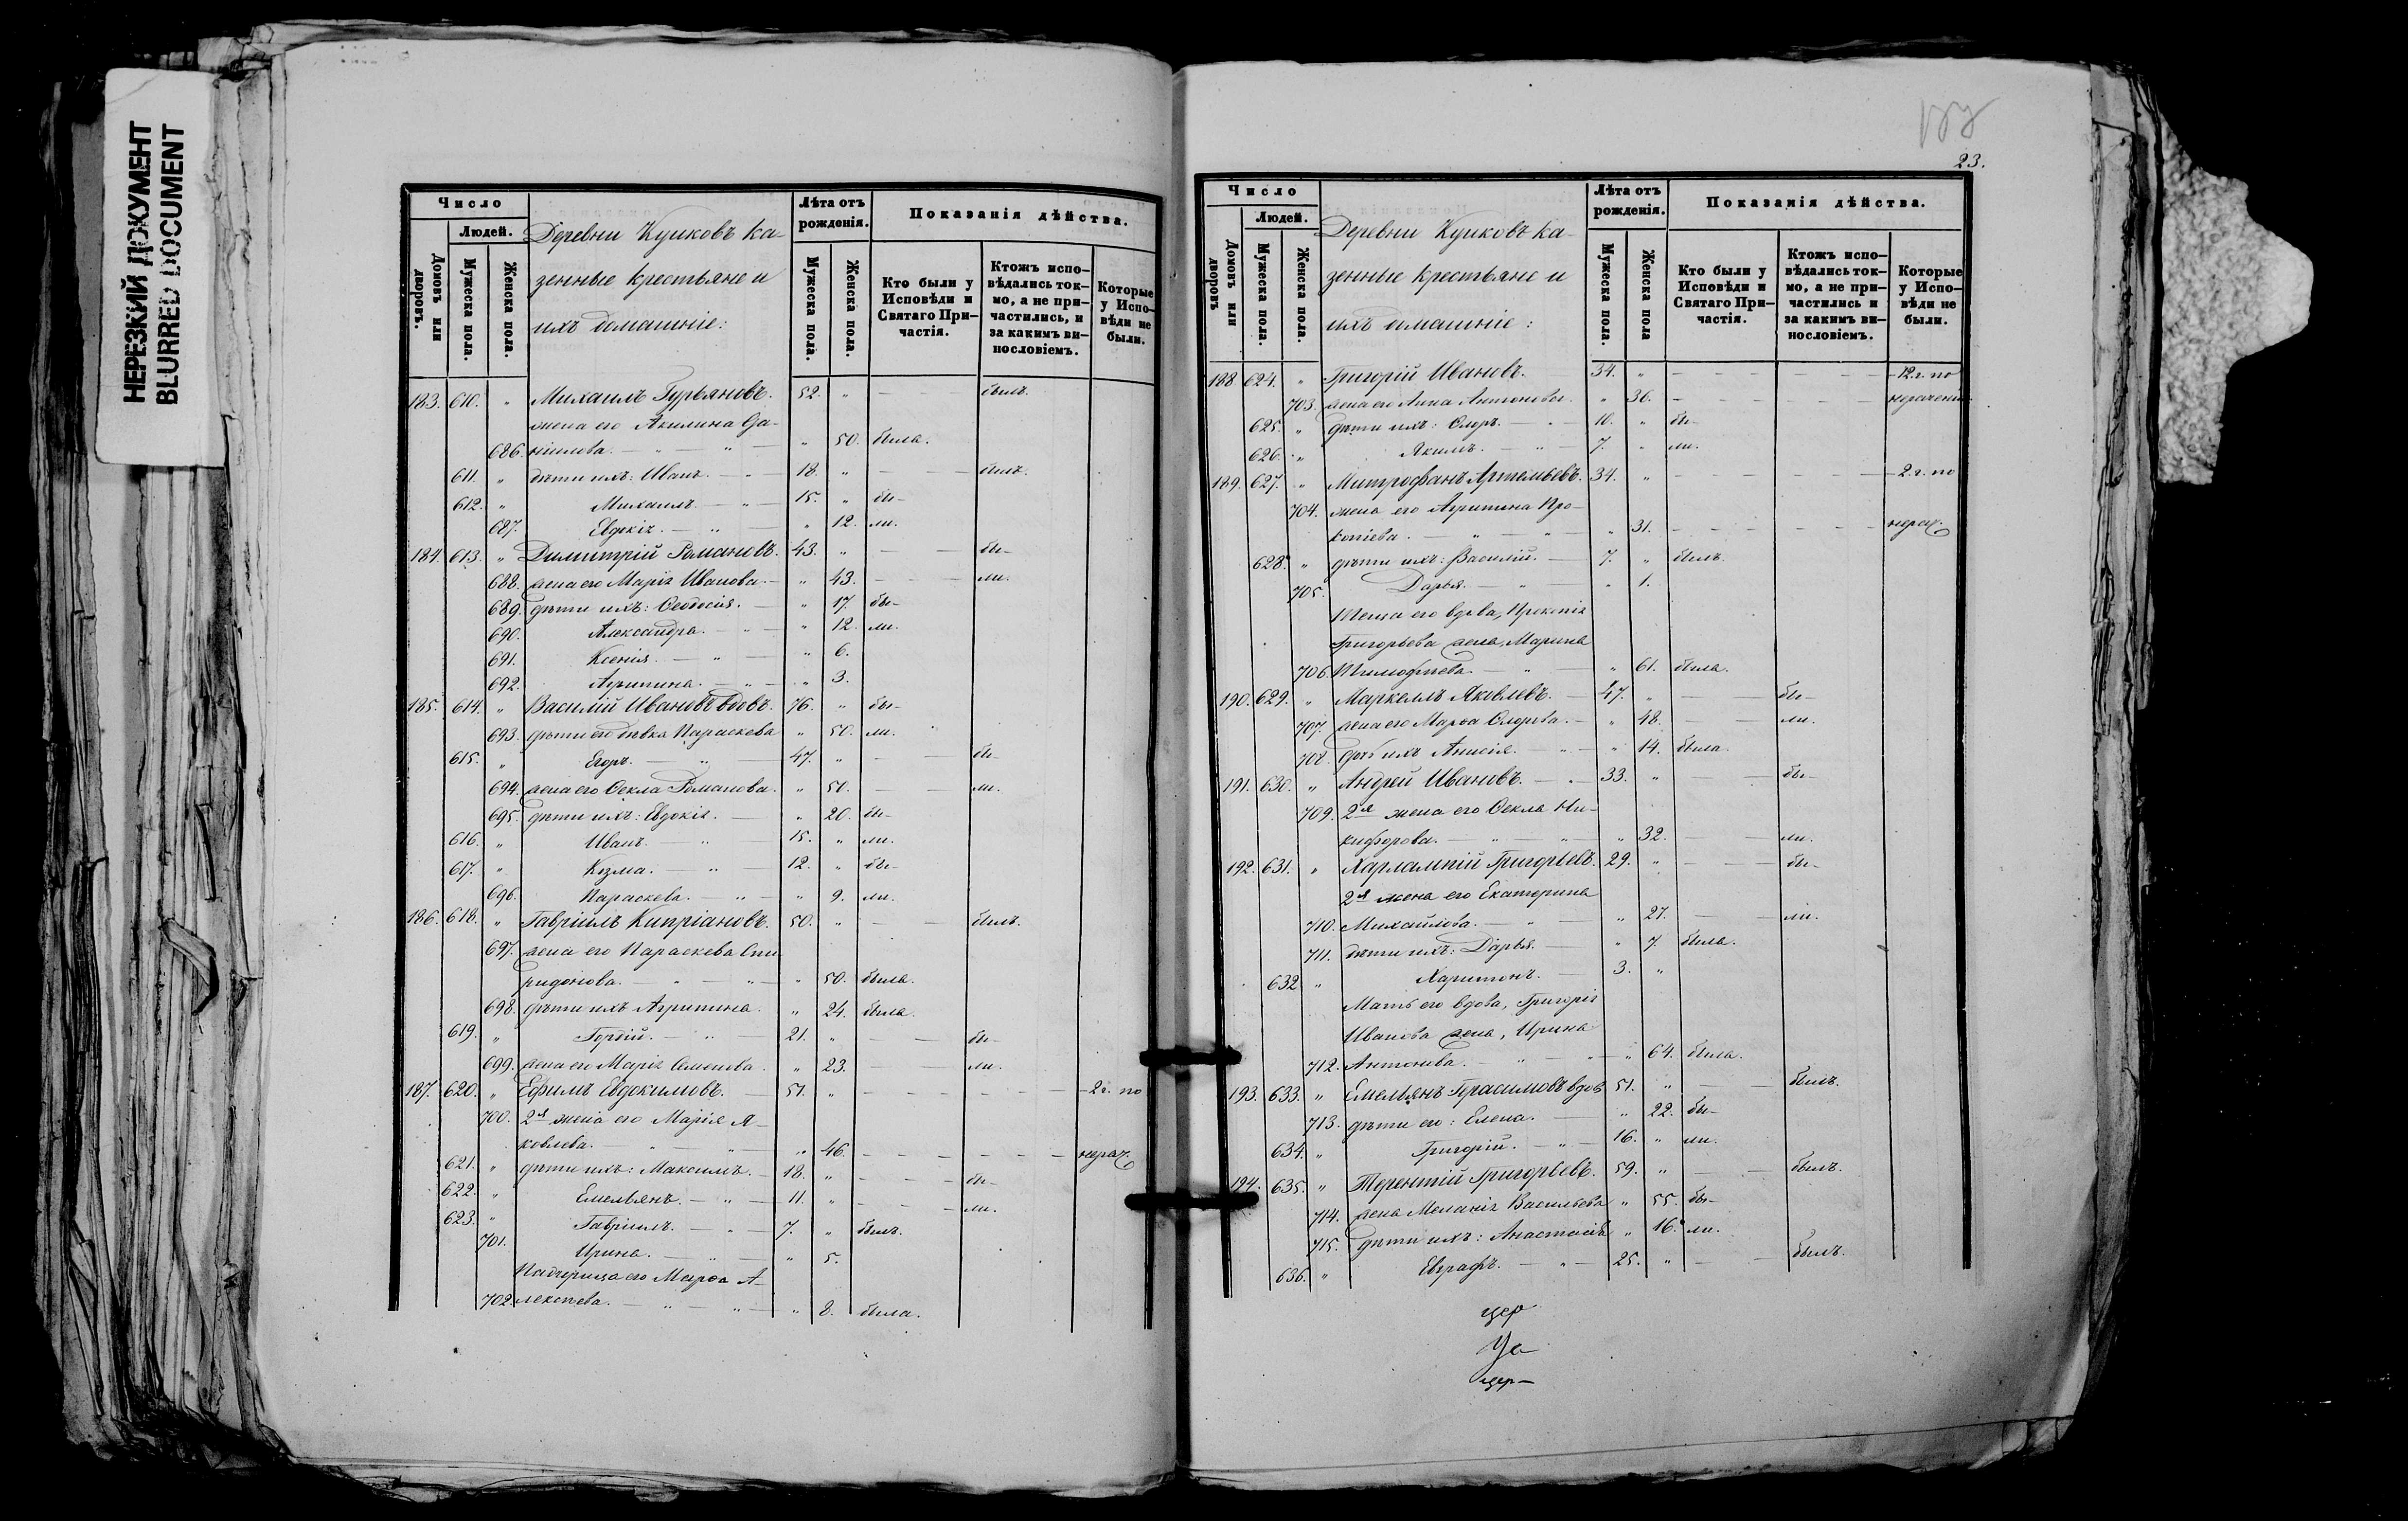 НЕРЕЗКИЙ ДОКУМЕНТ
BLURRED DOCUMENT
Число
Людей.
Домовъ или дворовъ.
Мужеска пола.
Женска пола.
Деревни Куликовъ ка-
зенные крестьяне и
ихъ домашніе:
Лѣта отъ рожденія.
Мужеска пола.
Женска пола.
Показанія дѣйства.
Кто были у Исповѣди и Святаго При-частія.
Ктожъ испо-вѣдались ток-мо, а не при-частились, и за какимъ ви-нословіемъ.
Которые у Испо-вѣди не были.
183. 610. " Михаилъ Гурьяновъ. 52. " — — былъ.
жена его Акилина Да-
686. ніилова. — " — " " 50. была.
611. " дѣти ихъ: Иванъ. — " 18. " — — былъ.
612. " Михаилъ. — " — 15. " бы-
687. Евдокія. — " — " 12. ли.
184. 613. " Димитрій Романовъ. 43. " — — бы-
688. жена его Марія Иванова. — " 43. — — ли.
689. дѣти ихъ: Ѳеодосія. — " 17. бы-
690. Александра. — " — " 12. ли.
691. Ксенія. — " — " 6.
692. Агрипина. — " — " 3.
185. 614. " Василій Ивановъ вдовъ. 76. " бы-
693. дѣти его дѣвка Параскева " 50. ли.
615. " Егоръ. — " — 47. " — — бы-
694. жена его Ѳекла Романова. " 50. — — ли.
695. дѣти ихъ: Евдокія. — " 20. бы-
616. " Иванъ. — " 15. " ли.
617. " Козма. — " 12. " бы-
696. Параскева. — " — " 9. ли.
186. 618. " Гавріилъ Кипріановъ. 50. " — — былъ.
697. жена его Параскева Спи-
ридонова. — " — " — " 50. была.
698. дѣти ихъ Агрипина. " 24. была.
619. " Гордій. — " — 21. " — — бы-
699. жена его Марія Семенова. " 23. — — ли.
187. 620. " Ефимъ Евдокимовъ. — 51. " — — — — — 2 г. по
700. 2я жена его Марія Я-
ковлева. — " — " — " 46. — — — — — нерач.
621. " дѣти ихъ: Максимъ. — 18. " — — бы-
622. " Емельянъ. — " — 11. " — — ли.
623. " Гавріилъ. — " — 7. " былъ.
701. Ирина. — " — " 5.
Падчерица его Марѳа А-
702. лексѣева. — " — " — " 8. была.
23.
Число
Людей.
Домовъ или дворовъ
Мужеска пола.
Женска пола.
Деревни Куликовъ ка-
зенные крестьяне и
ихъ домашніе:
Лѣта отъ рожденія.
Мужеска пола.
Женска пола
Показанія дѣйства.
Кто были у Исповѣди и Святаго При-частія.
Ктожъ испо-вѣдались ток-мо, а не при-частились и за какимъ ви-нословіемъ.
Которые у Испо-вѣди не были.
188 624. " Григорій Ивановъ. 34. " — — — — — 12 г. по
703. жена его Анна Антонова. " 36. — — — — нерачению.
625. " дѣти ихъ: Ѳлоръ. — " — 10. " бы-
626. " Якимъ. — " — 7. " ли.
189. 627. " Митрофанъ Артемьевъ. 34. " — — — — — 2. г. по
704. жена его Агрипина Про-
копіева. — " — " — " 31. — — — — — нерач.
628. " дѣти ихъ: Василій. — 7. " былъ.
705. Дарья. — " — " 1.
Теща его вдова, Прокопія
Григорьева жена, Марина
706. Тимофѣева. — " — " 61. была.
190. 629. " Маркеллъ Яковлевъ. — 47. " — — бы-
707. жена его Марѳа Ѳлорова. — " 48. — — ли.
708. дочь ихъ Анисія. — " — " 14. была.
191. 630. " Андрей Ивановъ. — " — 33. " — — бы-
709. 2я жена его Ѳекла Ни-
кифорова. — " — " — " 32. — — ли.
192. 631. " Харлампій Григорьевъ. 29. " — — бы-
2я жена его Екатерина
710. Михайлова. — " — " 27. — — ли.
711. дѣти ихъ: Дарья. — " 7. была.
632 " Харитонъ. — 3. "
Мать его вдова, Григорія
Иванова жена, Ирина
712. Антонова. — " — " — " 64. была.
193. 633. " Емельянъ Герасимовъ вдов 51. " — — былъ.
713. дѣти его: Елена. — " 22. бы-
634. " Григорій. — " — 16. " ли.
194. 635. " Терентій Григорьевъ. 59. " — — былъ.
714. жена Меланія Васильева " 55. бы-
715. дѣти ихъ: Анастасія " 16. ли.
636. " Евграфъ. — " — 25. " — былъ.